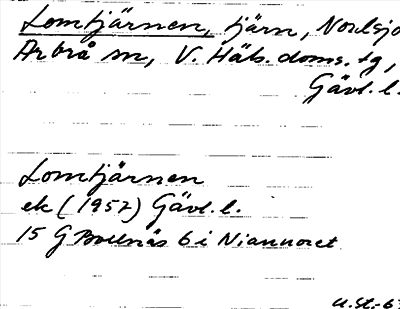 Lomtjärnen, tjärn, Norlsjö
Arbrå sn, V. Häls. doms. tg,
Gävl. l.
Lomtjärnen
ek (1957) Gävl. l.
15 G Bollnäs 6 i
U.St.-6